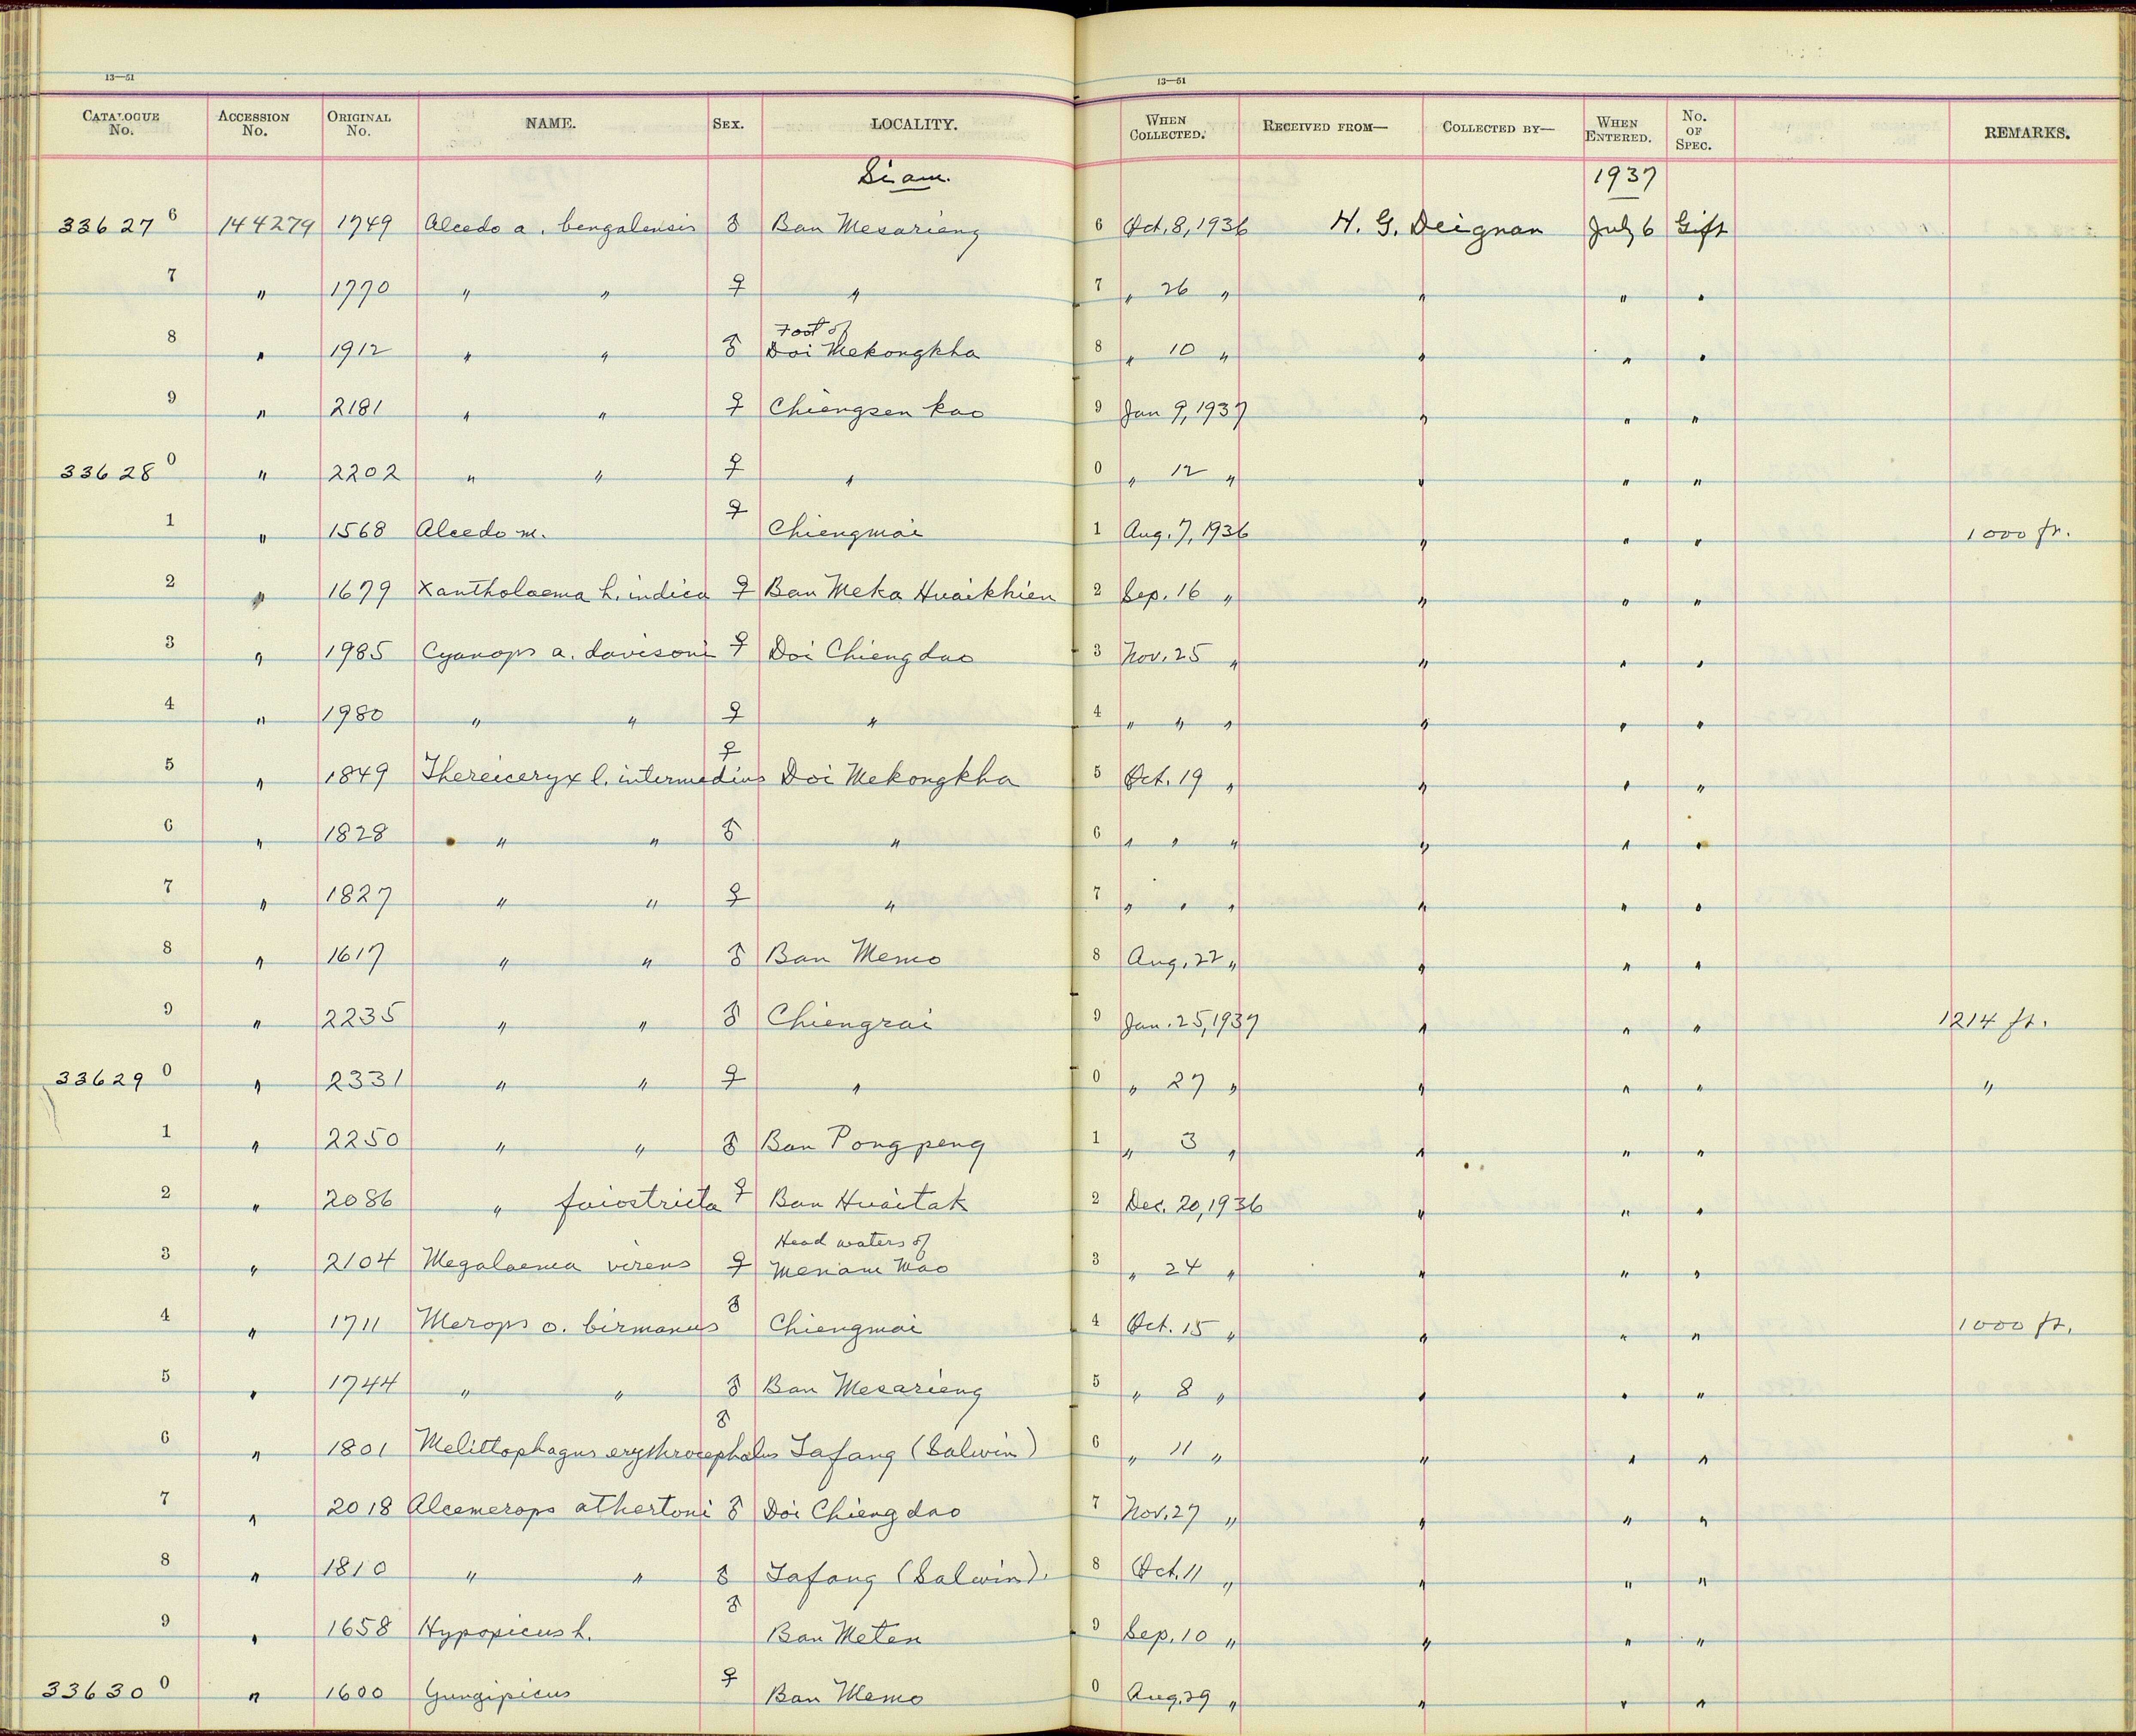 13—51 13—51
CATALOGUE No. ACCESSION No. ORIGINAL No. NAME. SEX. LOCALITY. WHEN COLLECTED. RECEIVED FROM— COLLECTED BY— WHEN ENTERED. No. OF SPEC. REMARKS.
Siam. 1937
33627 6 144279 1749 Alcedo a. bengalensis ♂ Ban Mesarieng 6 Oct. 8, 1936 H. G. Deignan July 6 Gift
7 " 1770 " " ♀ " 7 " 26 " " " "
Foot of
8 " 1912 " " ♂ Doi Mekongkha 8 " 10 " " " "
9 " 2181 " " ♀ Chiengsen kao 9 Jan 9, 1937 " " "
33628 0 " 2202 " " ♀ " 0 " 12 " " " "
1 " 1568 Alcedo m. ♀ Chiengmai 1 Aug. 7, 1936 " " " 1000 ft.
2 " 1679 Xantholaema h. indica ♀ Ban Meka Huaikhien 2 Sep. 16 " " " "
3 " 1985 Cyanops a. davisoni ♀ Doi Chiengdao 3 Nov. 25 " " " "
4 " 1980 " " ♀ " 4 " " " " " "
5 " 1849 Thereiceryx l. intermedius ♀ Doi Mekongkha 5 Oct. 19 " " " "
6 " 1828 " " ♂ " 6 " " " " " "
7 " 1827 " " ♀ " 7 " " " " " "
8 " 1617 " " ♂ Ban Memo 8 Aug. 22 " " " "
9 " 2235 " " ♂ Chiengrai 9 Jan. 25, 1937 " " " 1214 ft.
33629 0 " 2331 " " ♀ " 0 " 27 " " " " "
1 " 2250 " " ♂ Ban Pongpeng 1 " 3 " " " "
2 " 2086 " faiostricta ♀ Ban Huaitak 2 Dec. 20, 1936 " " "
Head waters of
3 " 2104 Megalaema virens ♀ Menam Mao 3 " 24 " " " "
4 " 1711 Merops o. birmanus ♂ Chiengmai 4 Oct. 15 " " " " 1000 ft.
5 " 1744 " " ♂ Ban Mesarieng 5 " 8 " " " "
6 " 1801 Melittophagus erythrocephalus ♂ Tafang (Salwin) 6 " 11 " " " "
7 " 2018 Alcemerops athertoni ♂ Doi Chiengdao 7 Nov. 27 " " " "
8 " 1810 " " ♂ Tafang (Salwin). 8 Oct. 11 " " " "
9 " 1658 Hypopicus h. ♂ Ban Meten 9 Sep. 10 " " " "
33630 0 " 1600 Gungipicus ♀ Ban Memo 0 Aug. 29 " " " "